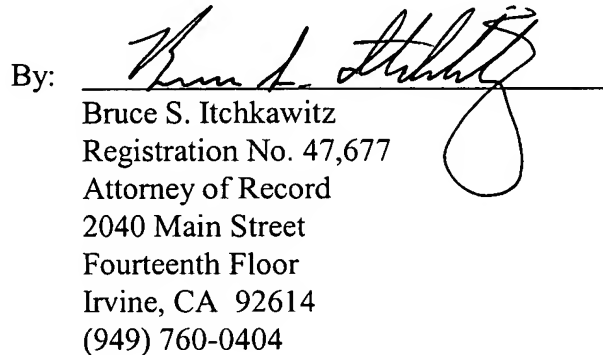 By:
Bruce S. Itchkawitz
Registration No. 47,677
Attorney of Record
2040 Main Street
Fourteenth Floor
Irvine, CA 92614
(949) 760-0404